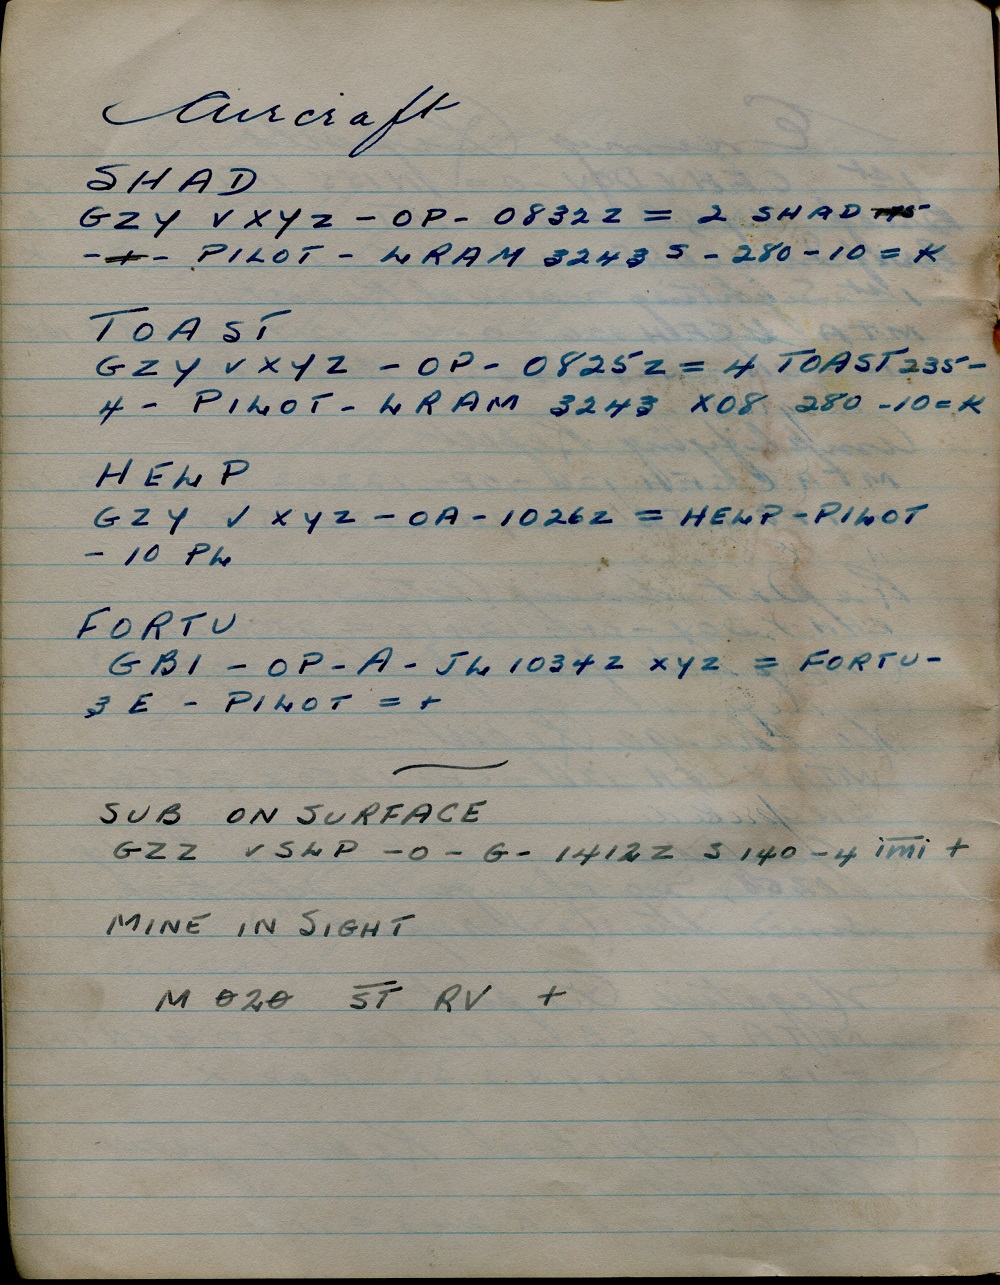 Aircraft
SHAD
GZY V XYZ - OP - 0832Z = 2 SHAD
- + - PILOT - LRAM 3243 S - 280 - 10 = K
TOAST
GZY V XYZ - OP - 0825Z = 4 TOAST 235 -
4 - PILOT - LRAM 3243 X08 280 - 10 = K
HELP
GZY V XYZ - OA - 1026Z = HELP - PILOT
- 10 PL
FORTU
GBI - OP - A - JL 1034Z XYZ = FORTU -
3 E - PILOT = +
SUB ON SURFACE
GZZ V SLP - O - G - 1412Z S 140 - 4 imi +
MINE IN SIGHT
M 020 ST RV +